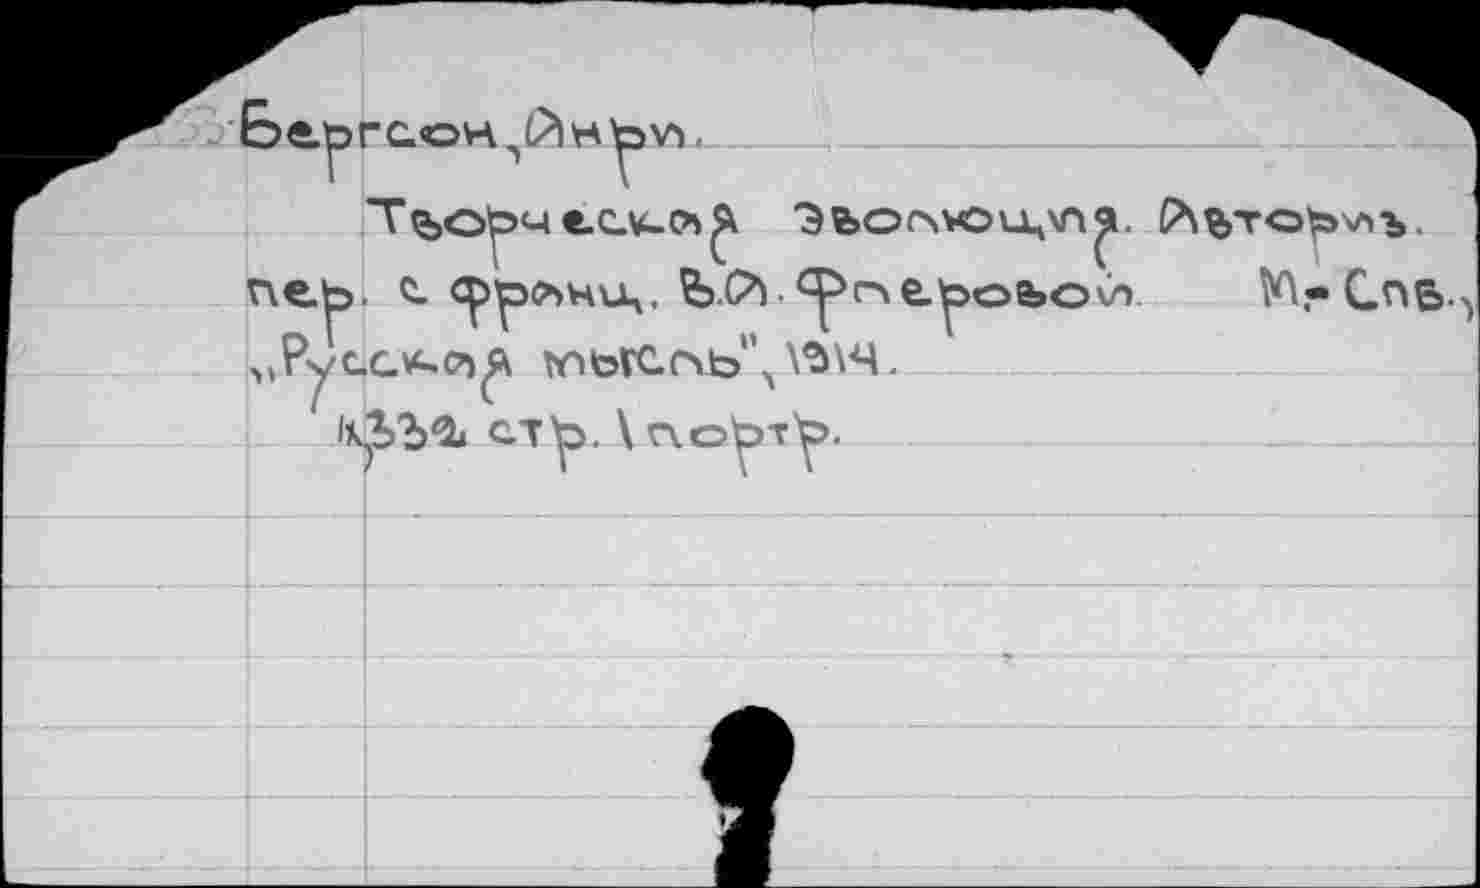 Бергсон, Анри.
Творческая эволюция. Авториз.
пер. с франц. В.А. Флеровой М.-Спб.,
„Русская мысль", 1914.
332 стр. 1 портр.